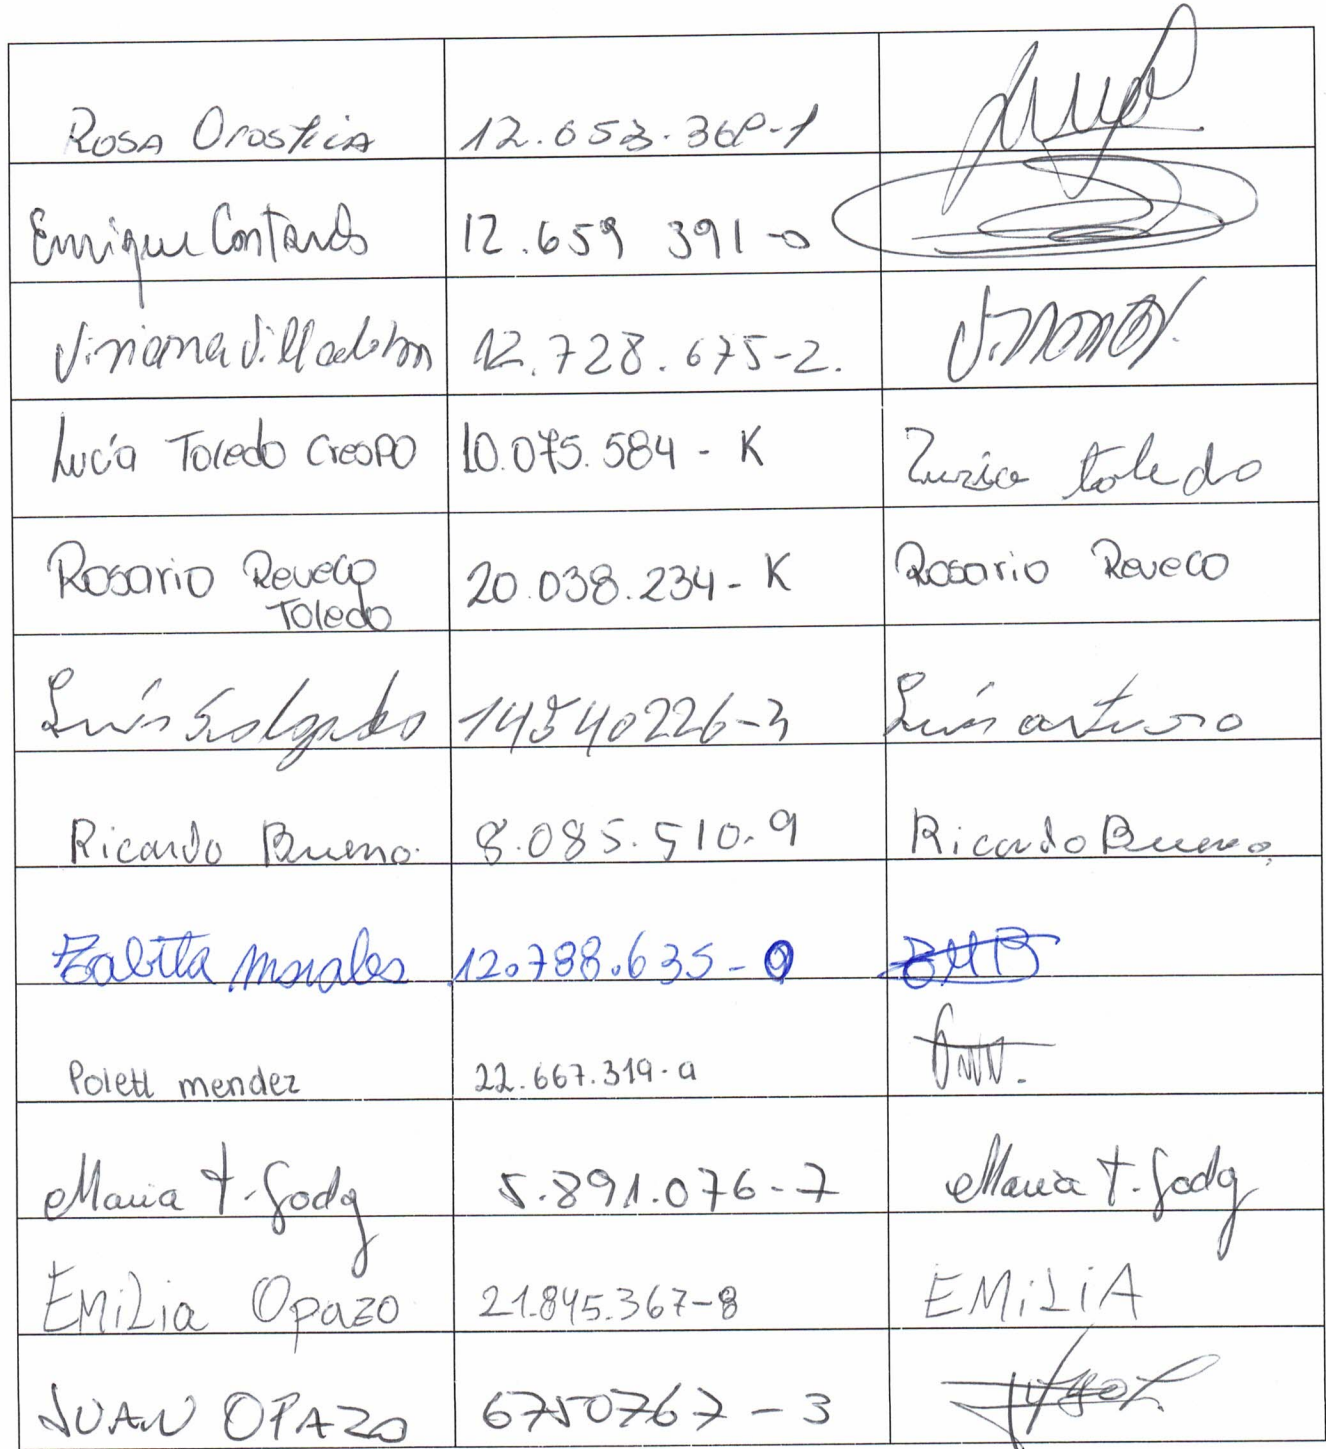 Rosa Orostica 12.653.368-1
Enrique Contardo 12.659 391-0
Viviana Villalobos 12.728.675-2.
Lucía Toledo Crespo 10.075.584 - K Luzia toledo
Rosario Reveco 20.038.234 - K Rosario Reveco
Toledo
Luis Salgado 14540226-3 Luis arturo
Ricardo Bueno. 8.085.510.9 Ricardo Bueno,
morales 12.788.635-0
Polett mendez 22.667.319-
Maria T. Godoy 5.891.076-7 Maria T. Godoy
EMiLia Opazo 21.845.367-8 EMiLiA
JUAN OPAZO 6750767-3